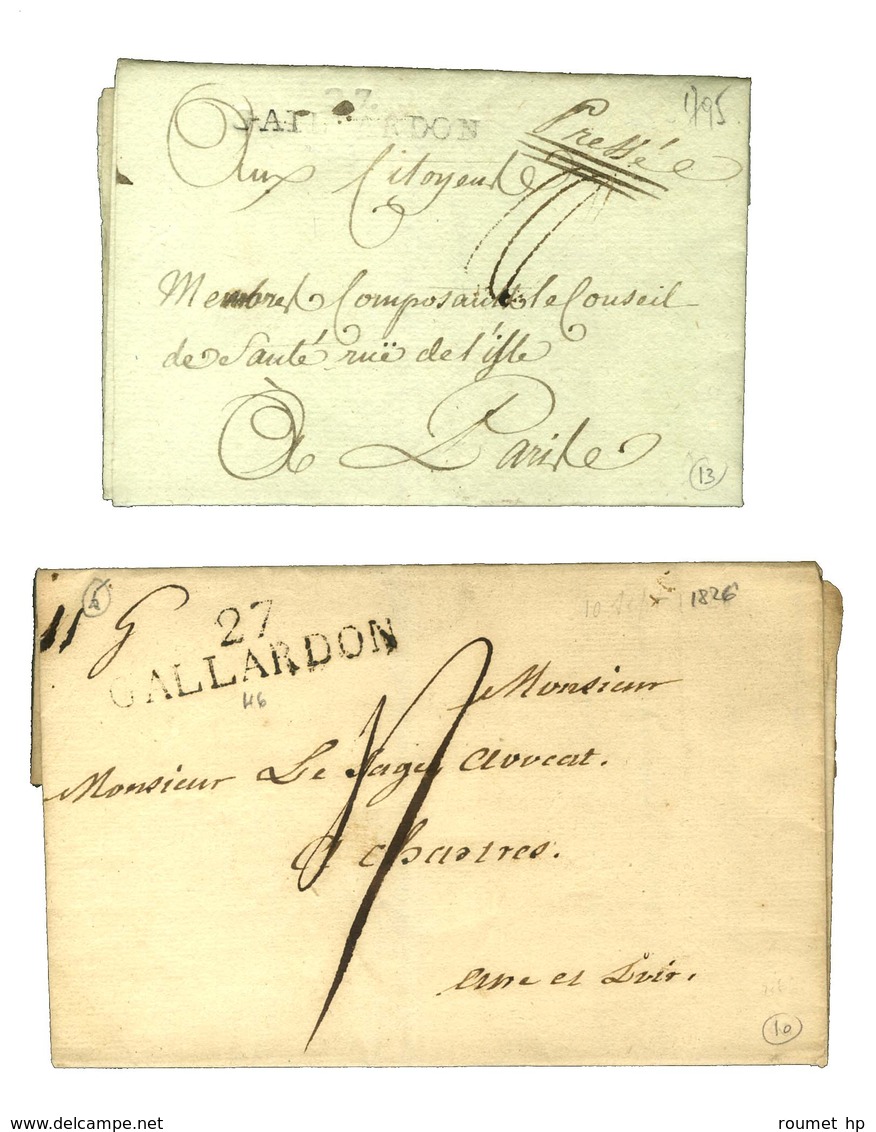 27
GAILLARDON
Pressé
1795
Aux Citoyens
Membres Composant le Conseil
de Santé ruë de l'isle
À Paris
13
27
GALLARDON
46
1826
Monsieur
Monsieur Le Sage, avocat.
a chartres.
eure et Loir.
10
www.delcampe.net
roumet hp